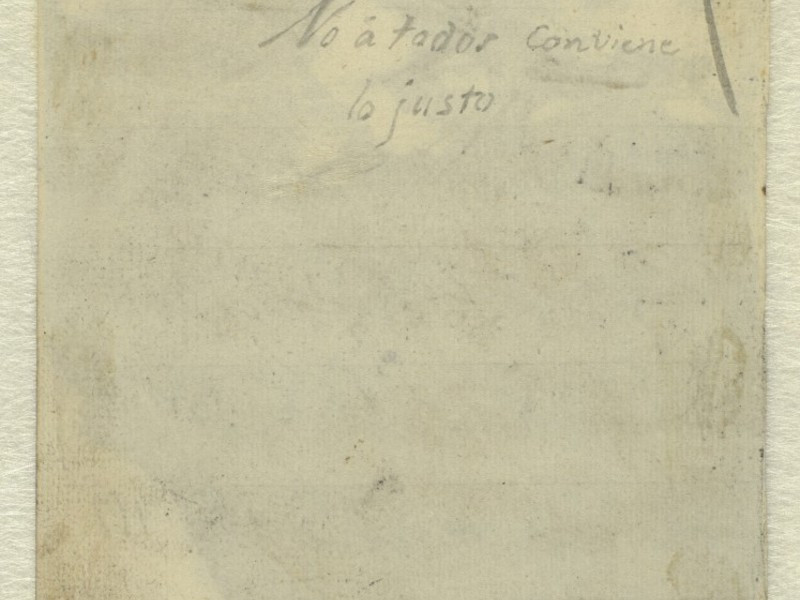 No á todos conviene
lo justo